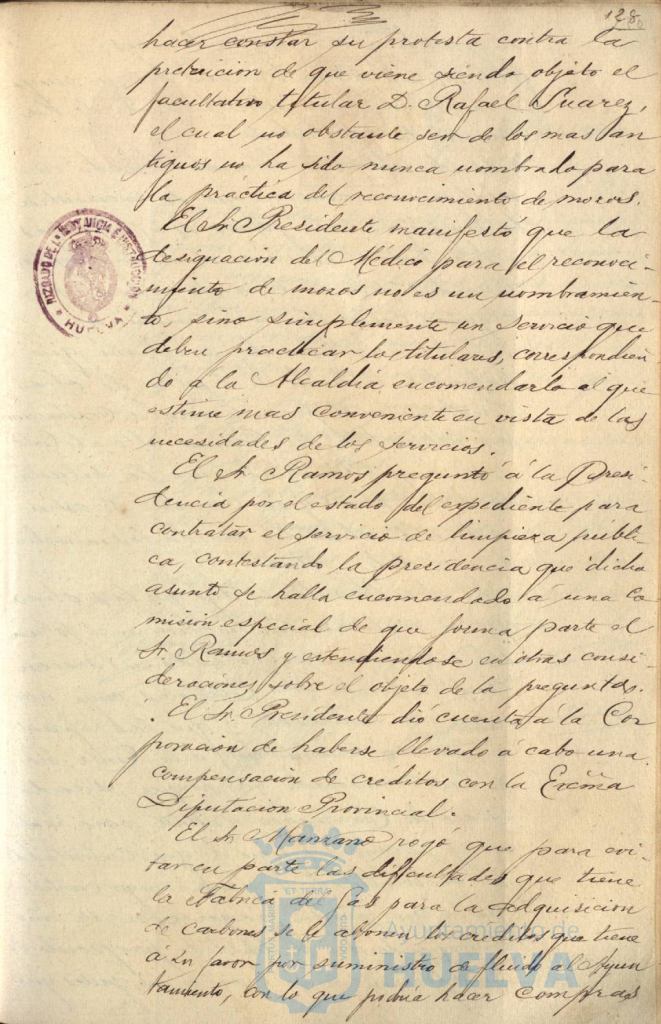 128
hacer constar su protesta contra la
pretericion de que viene siendo objeto el
facultativo titular D. Rafael Suarez,
el cual no obstante ser de los mas an
tiguos no ha sido nunca nombrado para
la práctica del reconocimiento de mozos.
El Sr. Presidente manifestó que la
designacion del Médico para el reconoci-
miento de mozos no es un nombramien-
to, sino simplemente un servicio que
deben practicar los titulares, correspondien
do á la Alcaldía encomendarlo al que
estime mas conveniente en vista de las
necesidades de los servicios.
El Sr. Ramos preguntó á la Presi-
dencia por el estado del expediente para
contratar el servicio de limpieza públi-
ca, contestando la presidencia que dicho
asunto se halla encomendado á una co
misión especial de que forma parte el
Sr. Ramos y estendiendose en otras consi-
deraciones sobre el objeto de la pregunta.
El Sr. Presidente dió cuenta á la Cor
poración de haberse llevado á cabo una
compensación de créditos con la Excma
Diputacion Provincial.
El Sr. Manzano rogó que para evi-
tar en parte las dificultades que tiene
la Fabrica de Gas para la adquisicion
de carbones se le abonen los créditos que tiene
á su favor por suministro de fluido al Ayun
tamiento, con lo que podria hacer compras
HUELVA
Ayuntamiento de
HUELVA